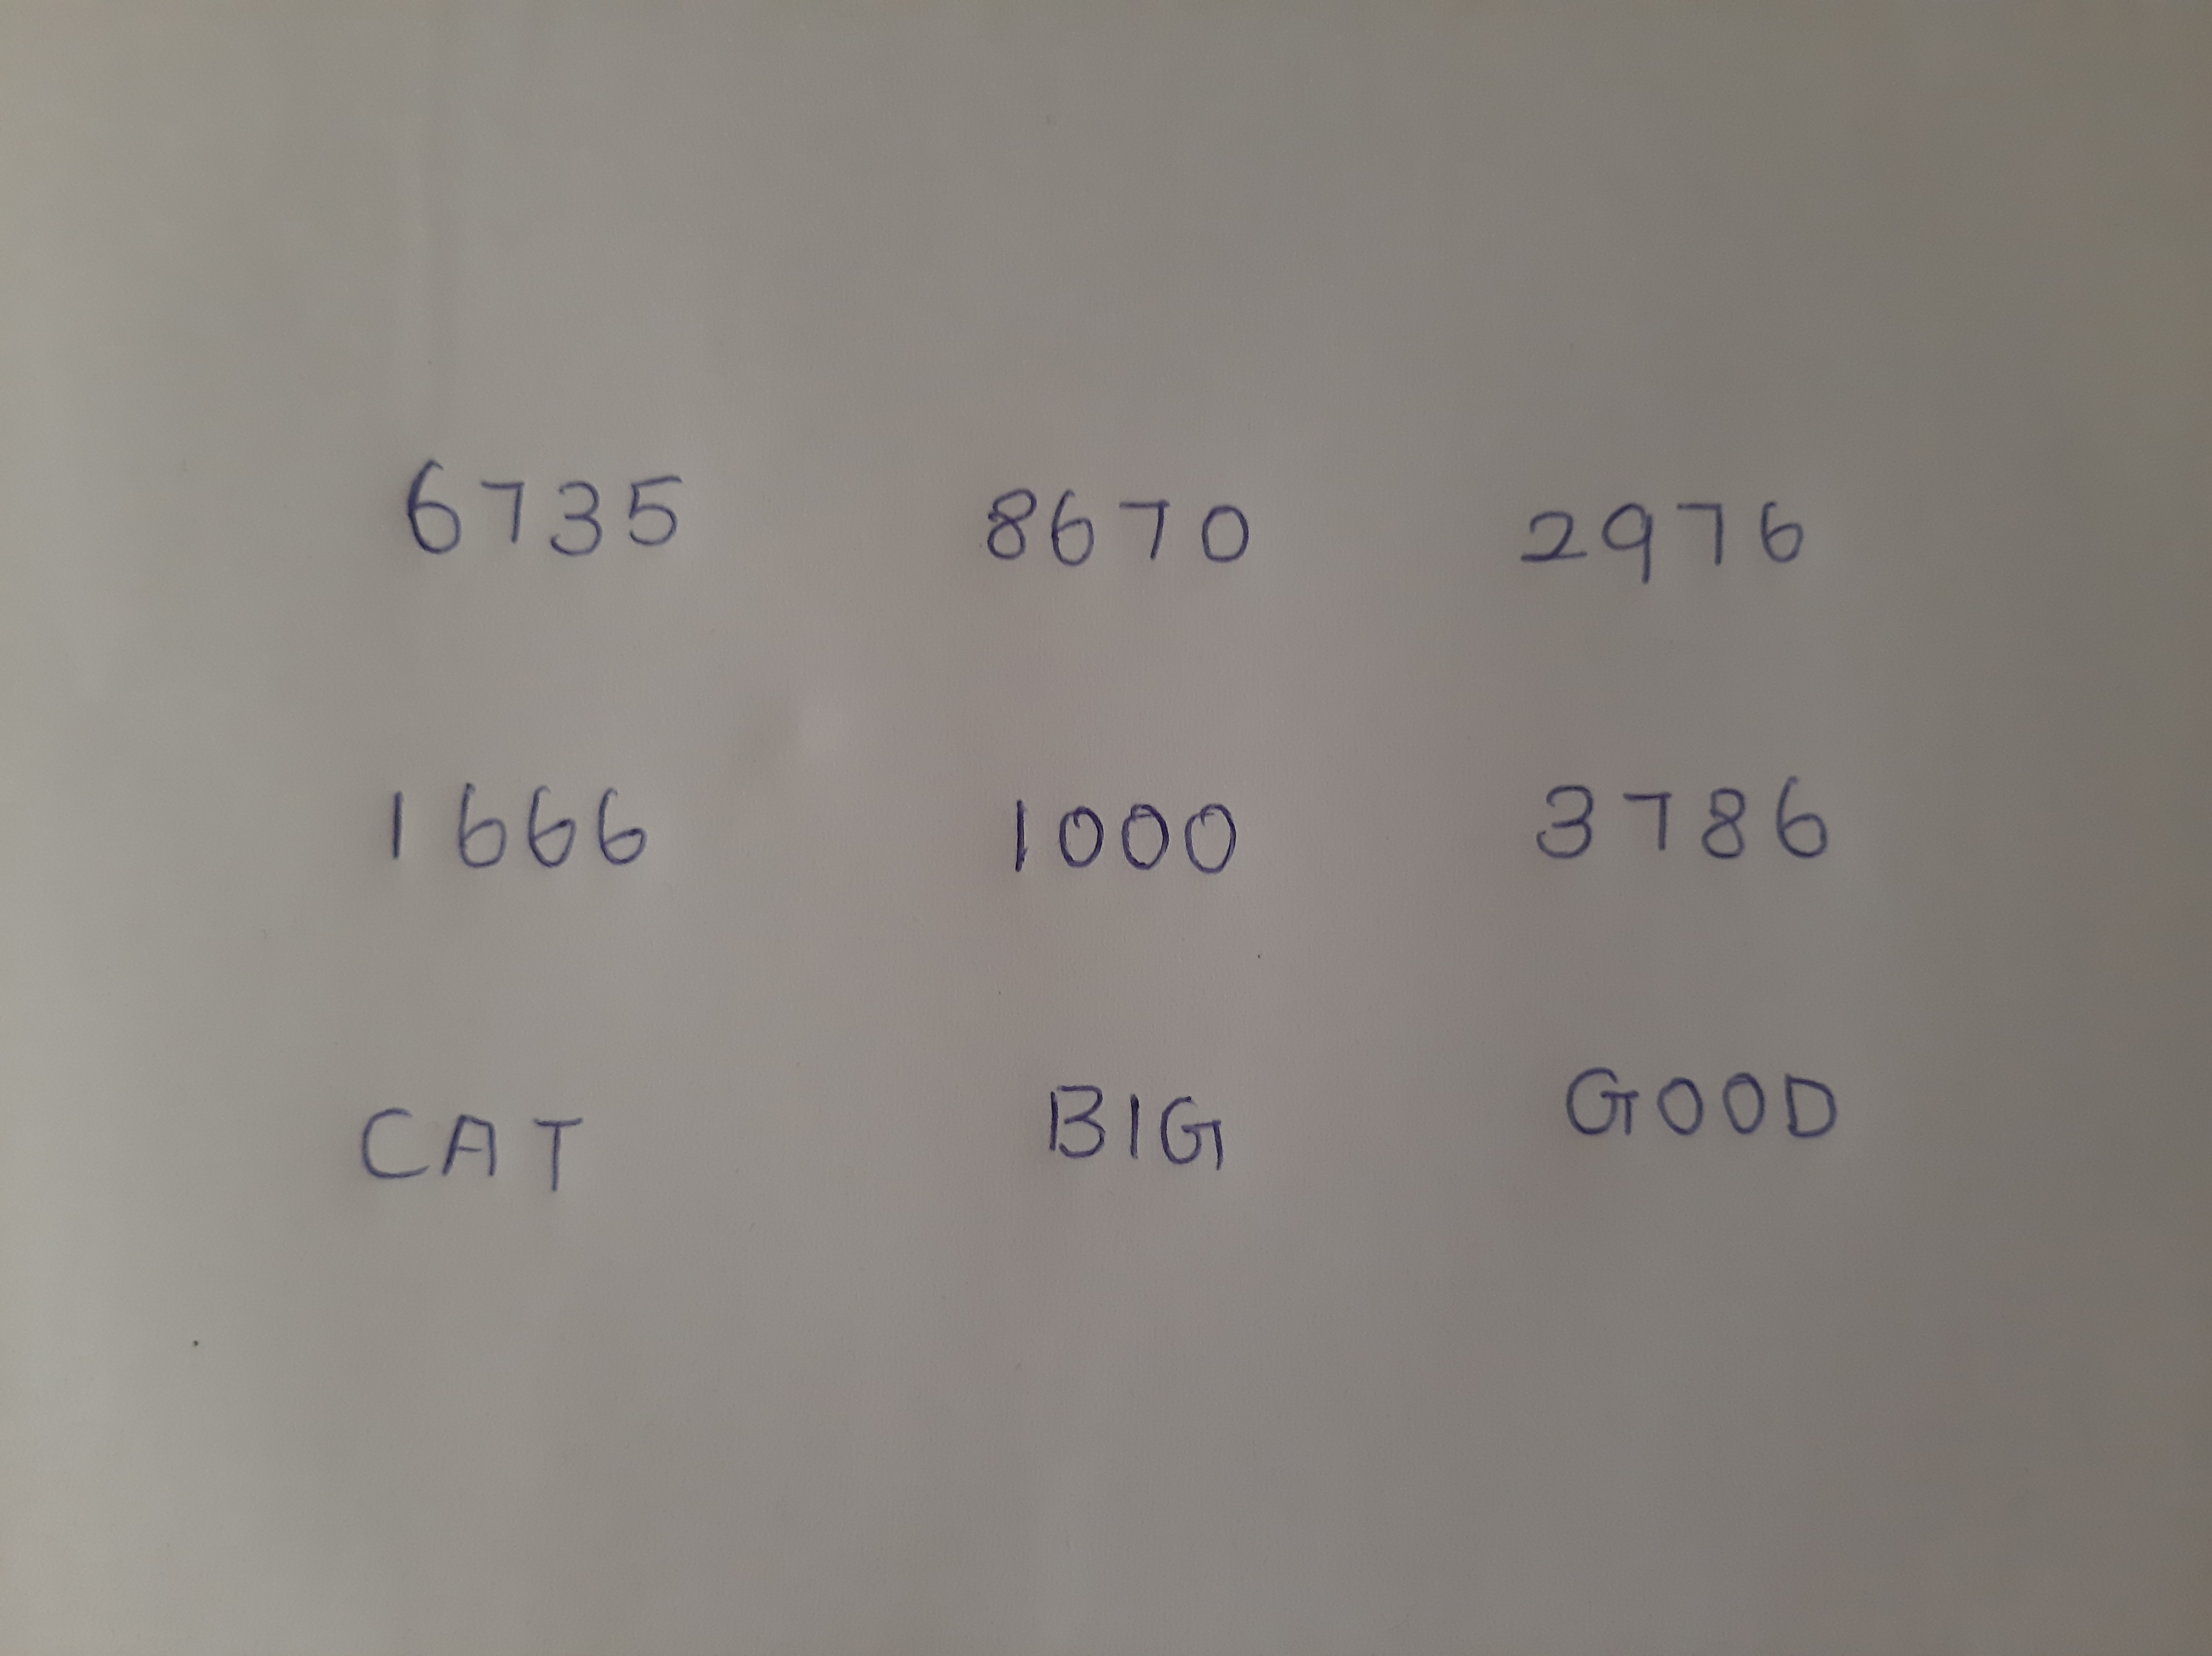 6735 8670 2976
1666 1000 3786
CAT BIG GOOD